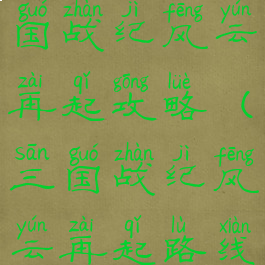 guó zhàn jì fēng yún
国战纪风云
zài qǐ gōng lüè
再起攻略（
sān guó zhàn jì fēng
三国战纪风
yún zài qǐ lù xiàn
云再起路线